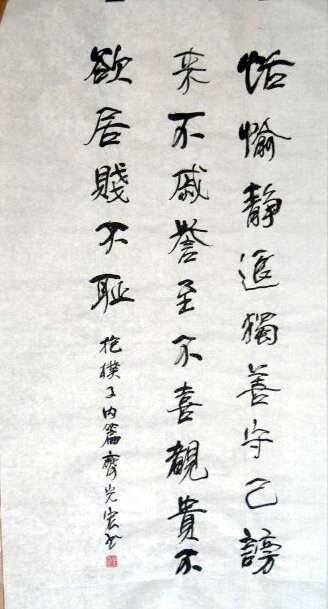 恬愉静退獨善守己謗
来不戚譽至不喜觀貴不
欲居賤不耻
抱樸子内篇齊光宏书